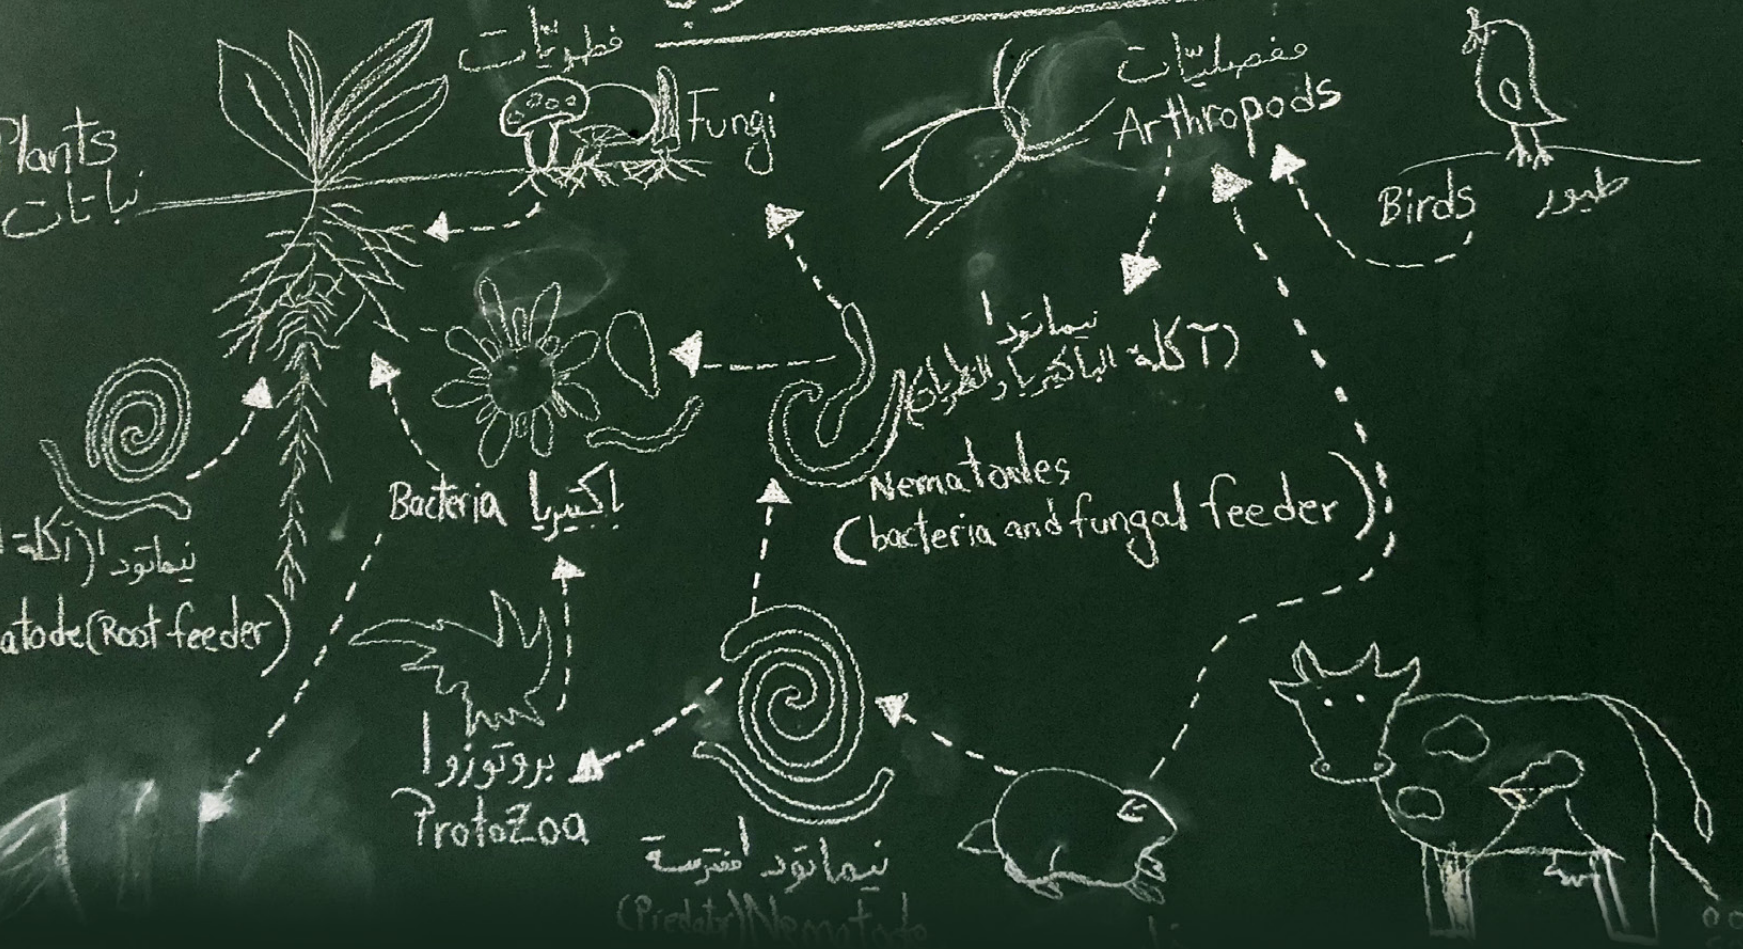 فطريّات
Fungi
مفصليّات
Arthropods
Plants
نباتات
Birds
طيور
نيماتودا
(آكلة الباكتيريا والفطريات)
Nematodes
(bacteria and fungal feeder)
Bacteria
باكتيريا
نيماتودا (آكلة
atode (Root feeder)
بروتوزوا
ProtoZoa
نيماتودا مفترسة
(Predator) Nematode